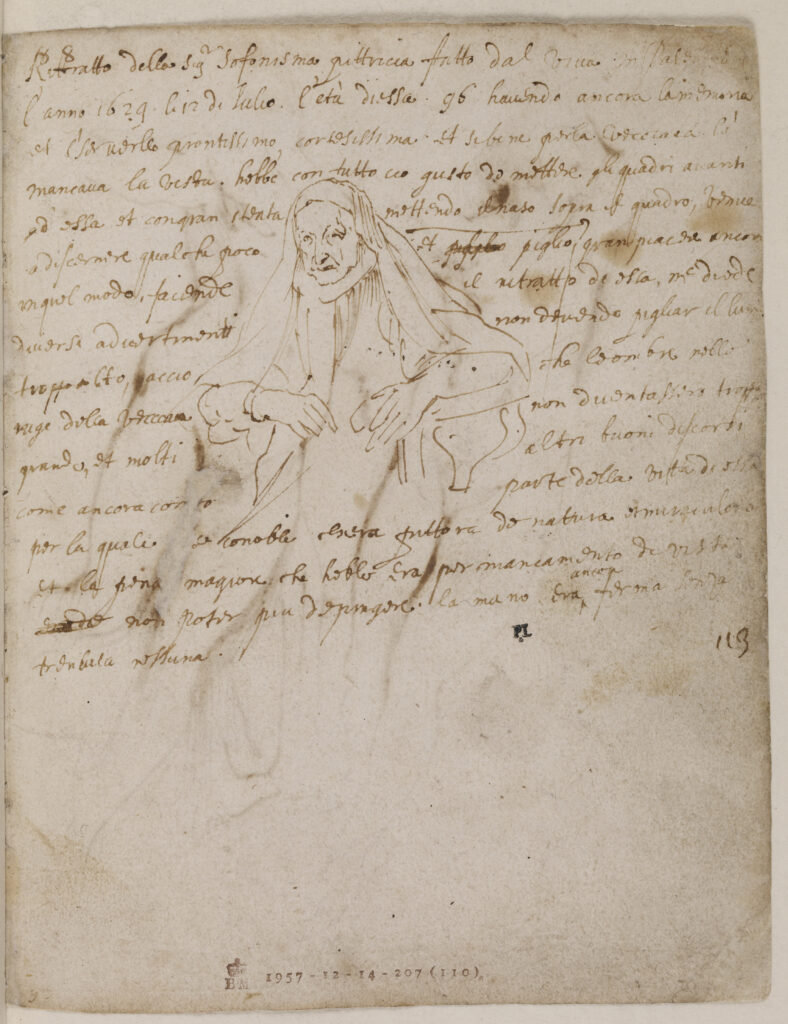 Rittratto della Sigra Sofonisma pittricia fatto dal vivo in Palermo
l'anno 1629 li 12 di Iulio. l'età di essa 96 havendo ancora la memoria
et il servello prontissimo, cortesissima et sibene per la vecciaia le
mancava la vista. hebbe con tutto cio gusto de mettere gli quadri avanti
ad essa et con gran stenta mettendo il naso sopra il quadro, venne
a discernere qualche poco et piglio gran piacere ancora
in quel modo, facendo il ritratto de essa, me diede
diversi advertimenti non devendo pigliar il lume
troppo alto, accio che le ombre nelle
ruge della vecciaia non diventassero troppo
grande, et molti altri buoni discorsi
come ancora conto parte della vita di essa
per la quale se conobbe ch'era pittora de natura et miraculosa
et la pena magiore che hebbe era per mancamento di vista
non poter piu depingere. la mano era ancora ferma senza
trembula nessuna.
PL
113
BM 1957-12-14-207(110)